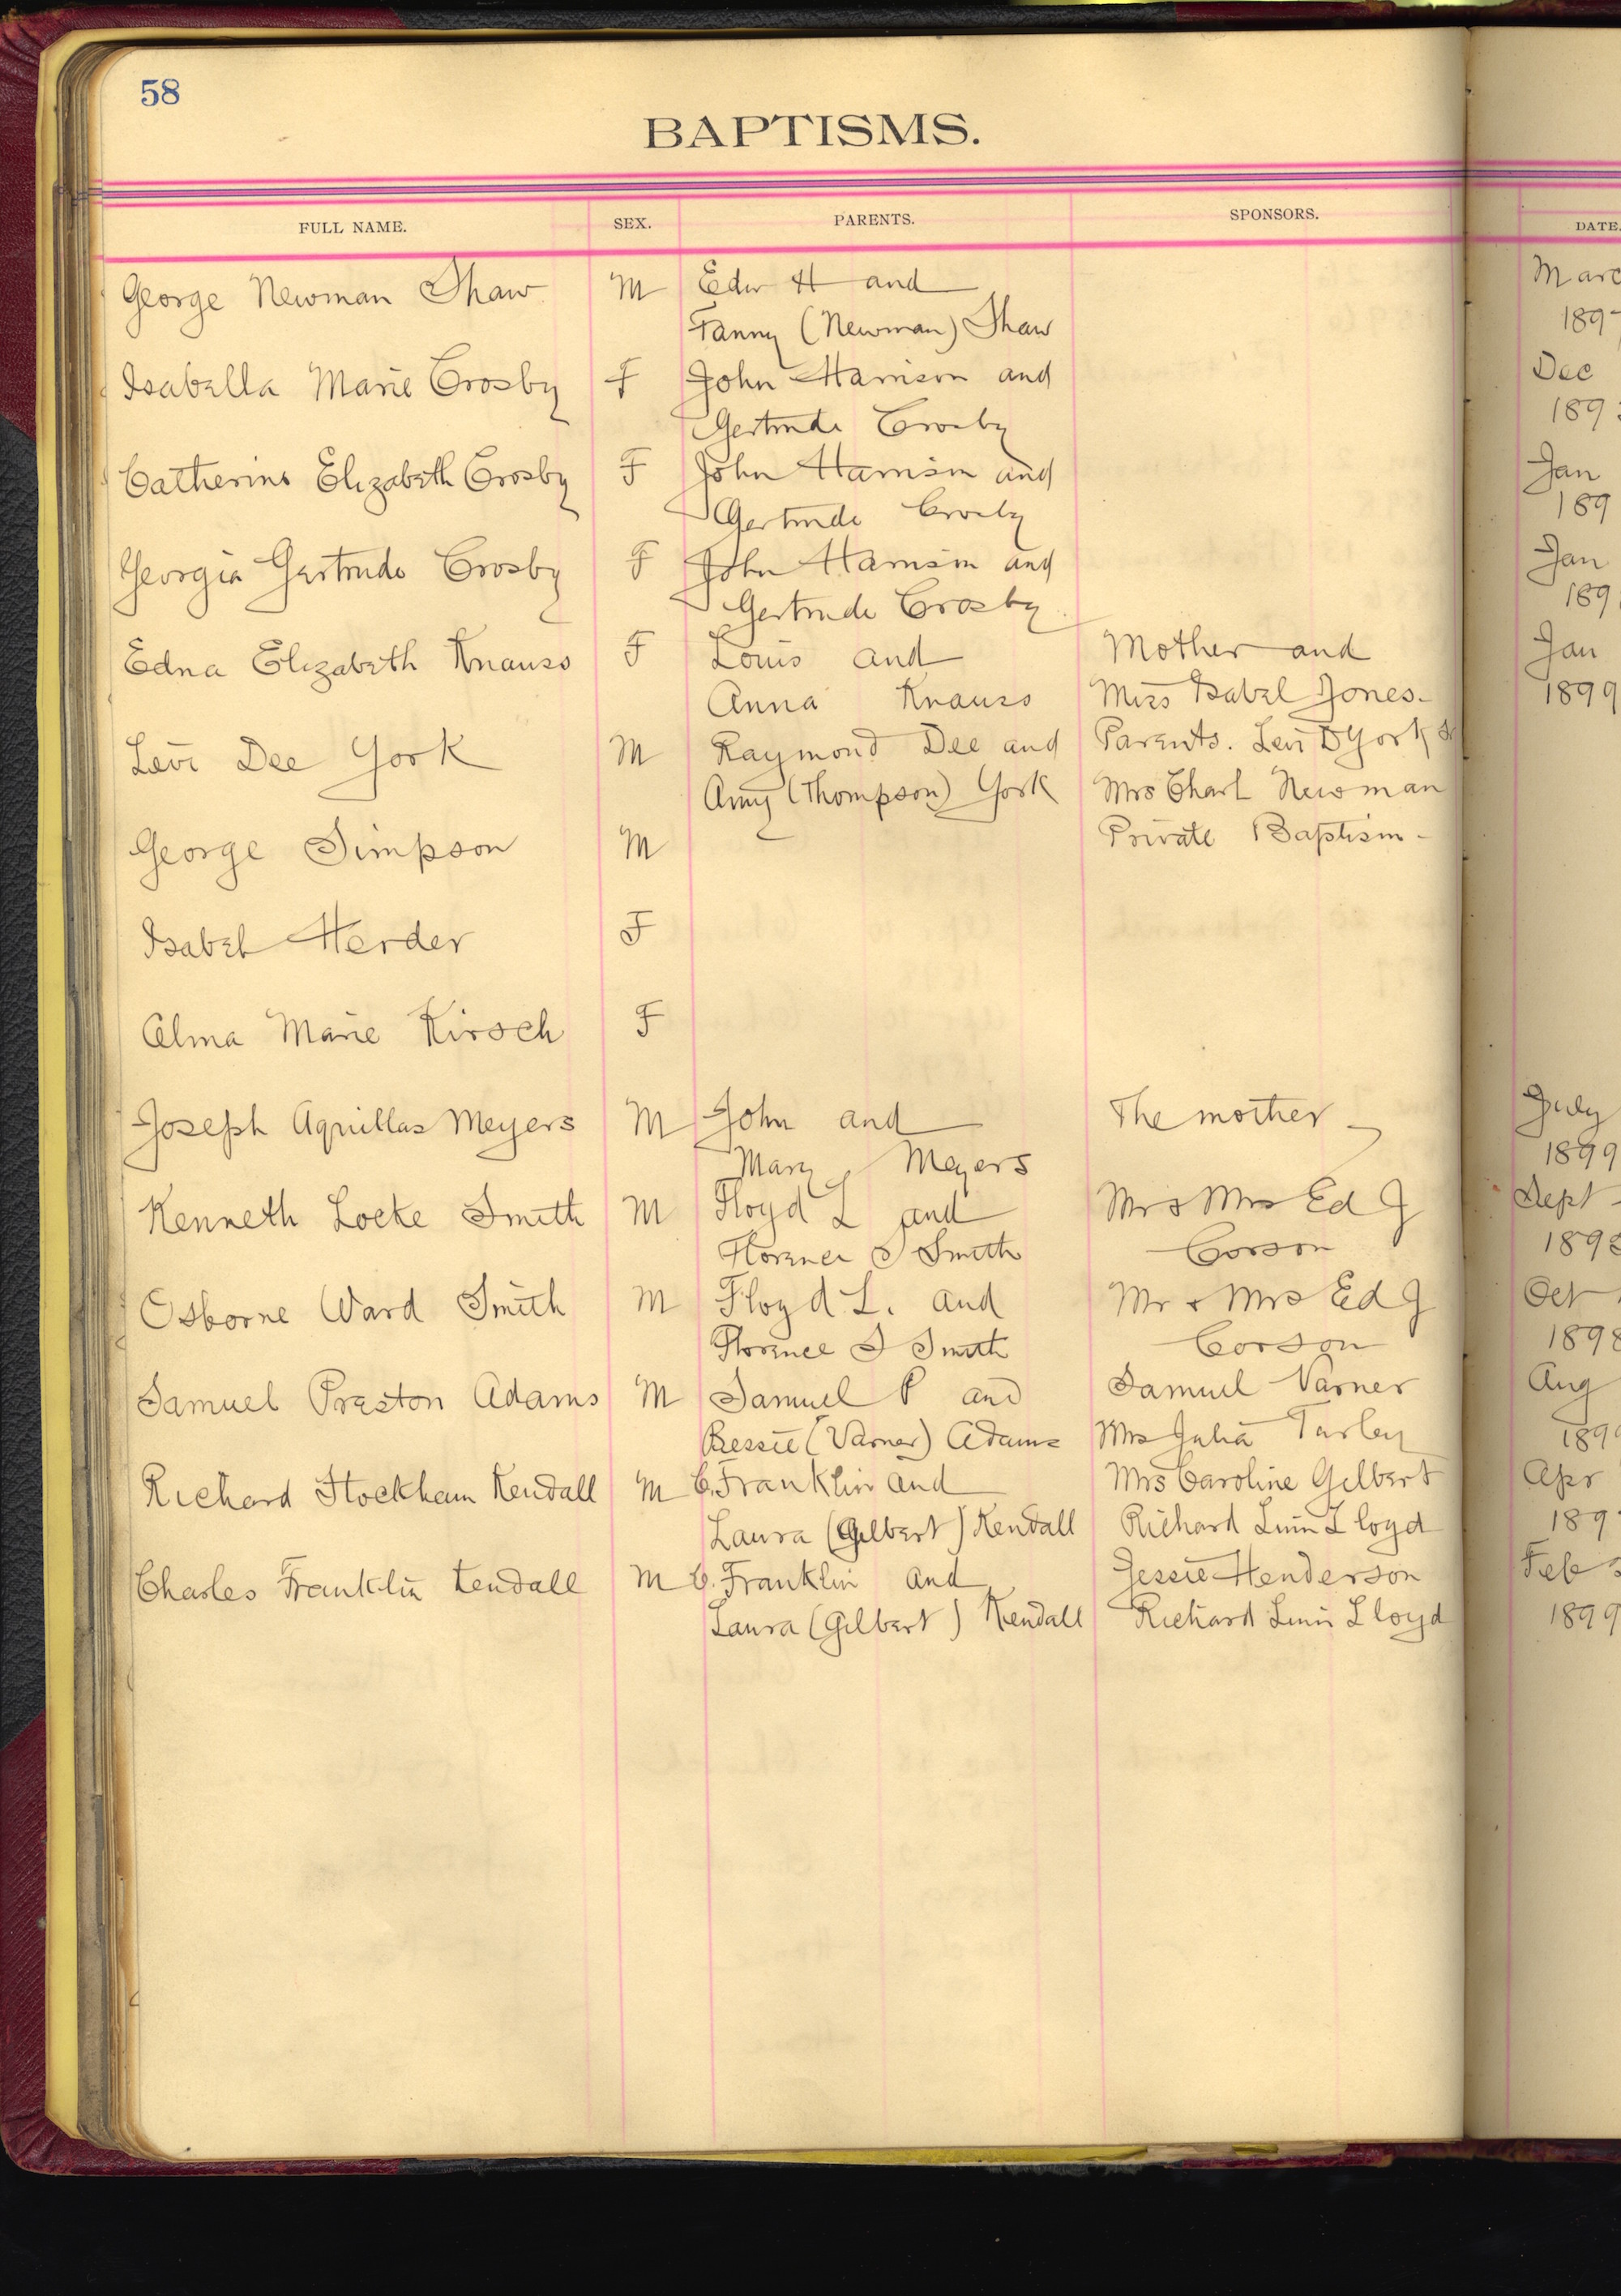 58
BAPTISMS.
FULL NAME. SEX. PARENTS. SPONSORS. DATE.
George Newman Shaw M Edw H and Marc
Fanny (Newman) Shaw 189
Isabella Marie Crosby F John Harrison and Dec
Gertrude Crosby 189
Catherine Elizabeth Crosby F John Harrison and Jan
Gertrude Crosby 189
Georgia Gertrude Crosby F John Harrison and Jan
Gertrude Crosby 189
Edna Elizabeth Knauss F Louis and Mother and Jan
Anna Knauss Miss Isabel Jones- 1899
Levi Dee York M Raymond Dee and Parents. Levi D York Sr
Amy (Thompson) York Mrs Charl Newman
George Simpson M Private Baptism -
Isabel Herder F
Alma Marie Kirsch F
Joseph Aquillas Meyers M John and The mother July
Mary Meyers 1899
Kenneth Locke Smith M Floyd L and Mr & Mrs Ed J Sept
Florence S Smith Corson 1898
Osborne Ward Smith M Floyd L. and Mr & Mrs Ed J Oct
Florence S Smith Corson 1898
Samuel Preston Adams M Samuel P and Samuel Varner Aug
Bessie (Varner) Adams Mrs Julia Turley 189
Richard Stockham Kendall M C. Franklin and Mrs Caroline Gilbert Apr
Laura (Gilbert) Kendall Richard Linn Lloyd 189
Charles Franklin Kendall M C. Franklin and Jessie Henderson Feb
Laura (Gilbert) Kendall Richard Linn Lloyd 1899